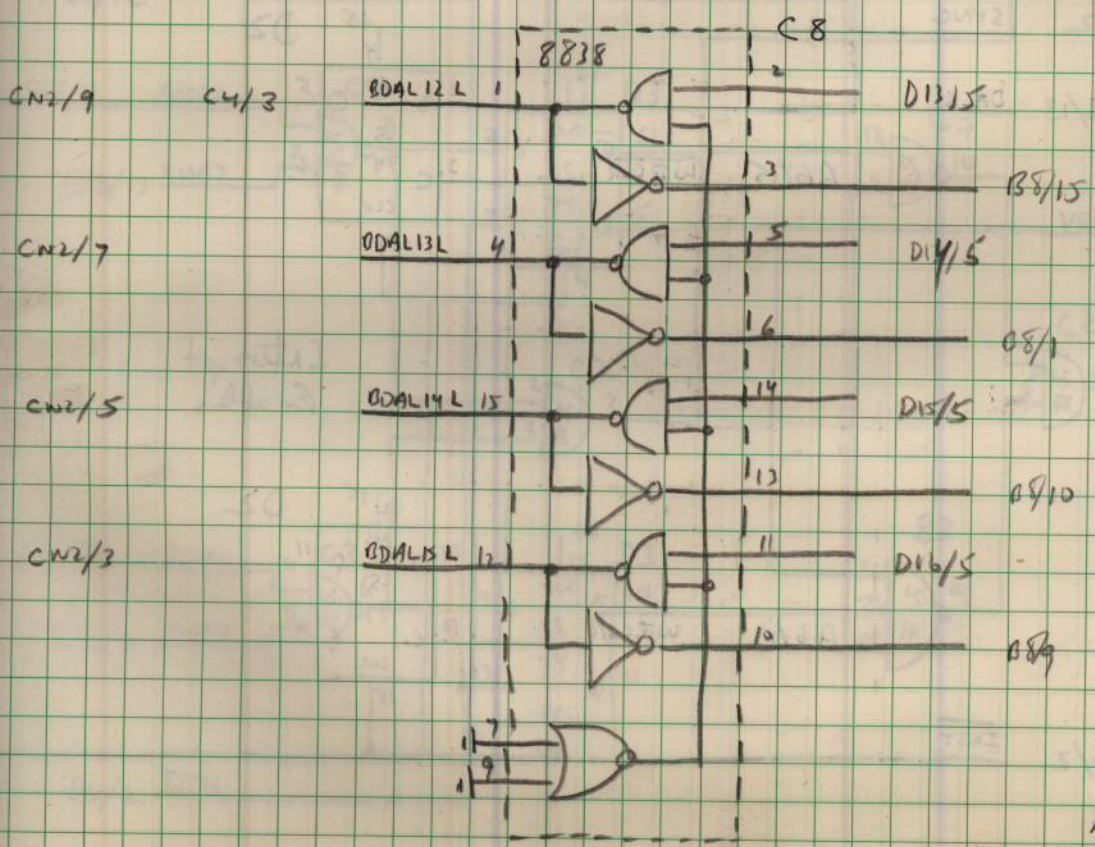 C8
8838
CN2/9 C4/3 BDAL12 L 1 2 D13/5
3 B8/15
CN2/7 BDAL13 L 4 5 D14/5
6 B8/1
CN2/5 BDAL14 L 15 14 D15/5
13 B8/10
CN2/3 BDAL15 L 12 11 D16/5
10 B8/9
7
9